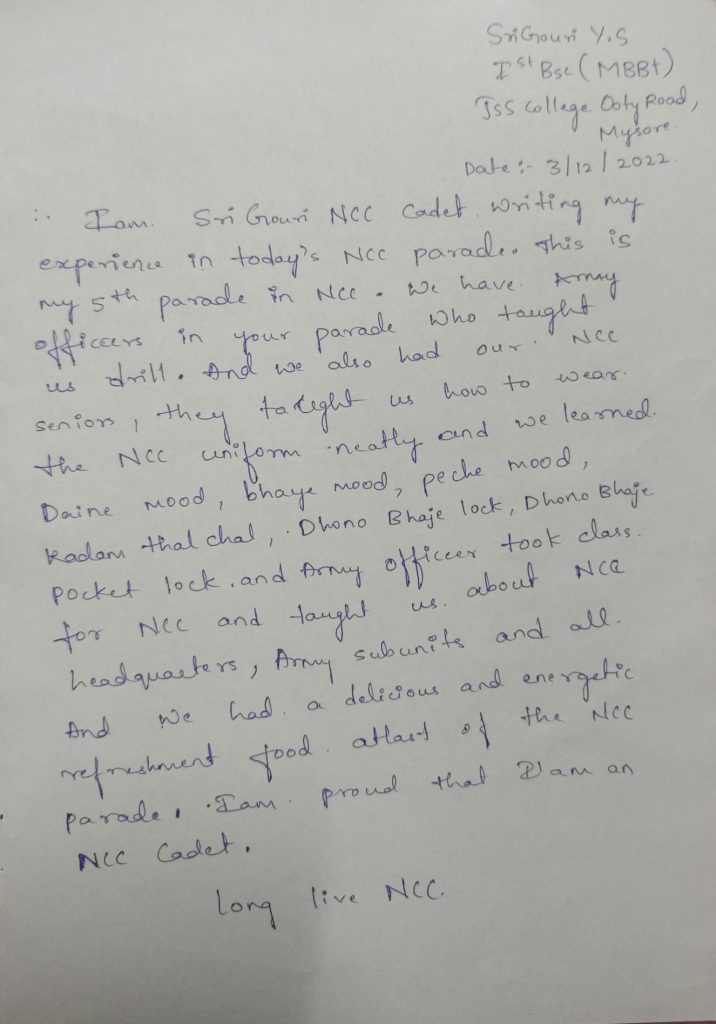 SriGouri Y.S
Ist Bsc (MBBt)
JSS College Ooty Road,
Mysore.
Date :- 3/12/2022.
:. Iam. Sri Gouri NCC Cadet. writing my
experience in today's NCC parade. This is
my 5th parade in NCC. We have. Army
officcers in your parade who taught
us drill. And we also had our. NCC
seniors, they taught us how to wear.
the NCC uniform neatly and we learned.
Daine mood, bhaye mood, peche mood,
Kadam thal chal, . Dhono Bhaje lock, Dhono Bhaje
Pocket lock. and Army officeer took class.
for NCC and taught us. about NCC
headquaeters, Army subunits and all.
And we had. a delicious and energetic
refreshment food. atlast of the NCC
parade. . Iam. proud that I'am an
NCC Cadet.
Long live NCC.